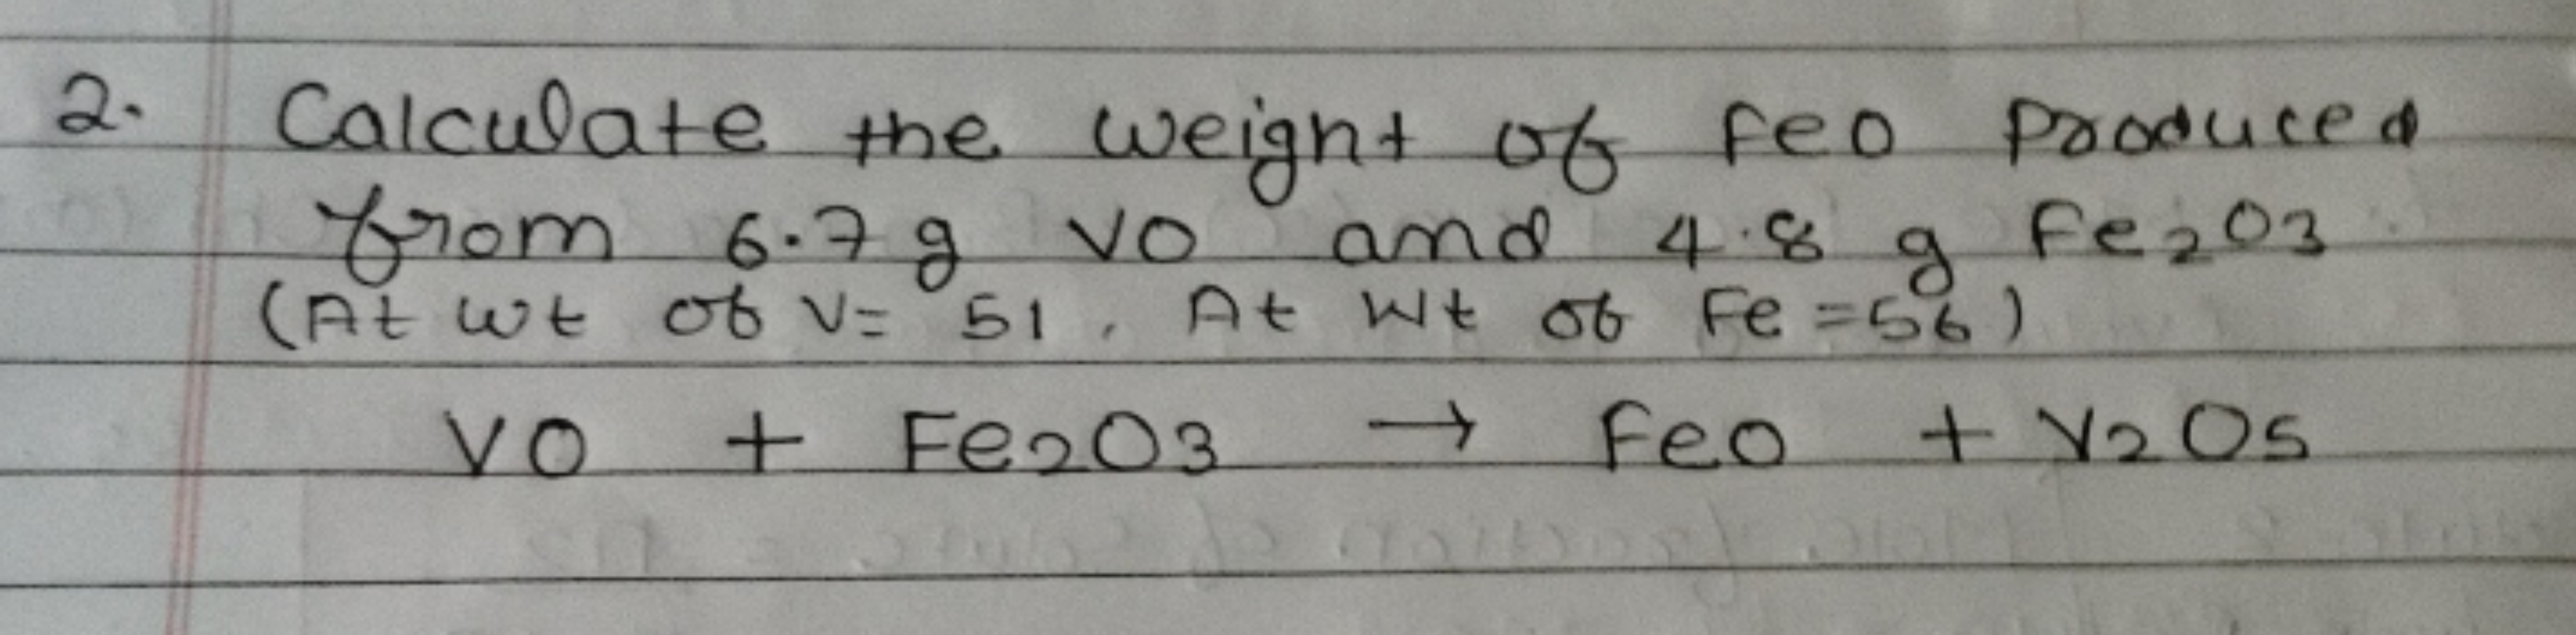 2. Calculate the weight of FeO Produced
from 6.7 g VO and 4.8 g Fe2O3
(At wt of V= 51, At Wt of Fe =56)
VO + Fe2O3 → FeO + V2O5